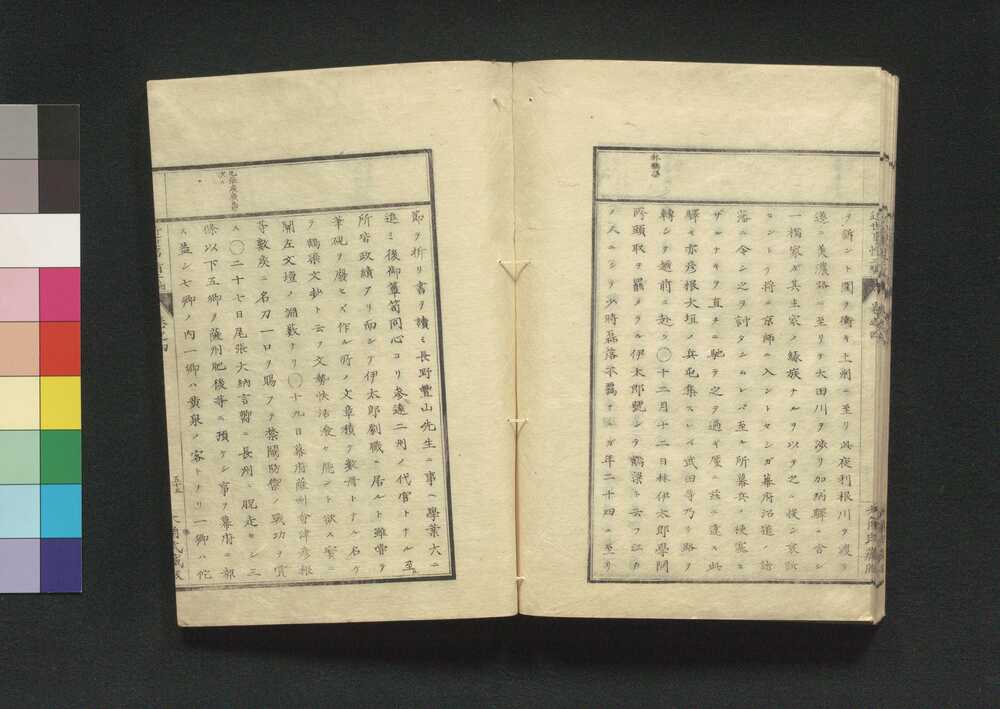 林鶴梁
ヲ訴ント関ヲ衝キ上州ニ至リ此夜利根川ヲ渡リ
進ミ美濃路ニ至リテ太田川ヲ渉リ加納驛ニ合シ
一橋家ガ其主家ノ縁族ナルヲ以テ之ニ投シ哀訴
セントテ将ニ京師ニ入ントセシガ幕府沿道ノ諸
藩ニ令シ之ヲ討タシムレバ至ル所幕兵ノ
ザルナキヲ直チニ馳テ之ヲ過ギ
驛ヤ亦彦根大垣ノ兵屯集スレバ武田等乃チ路ヲ
轉シテ越前ニ赴ク〇十二月十二日林伊太郎學問
所頭取ヲ罷メラル伊太郎號シテ鶴梁ト云フ江戸
ノ人ニシテ少時磊落不羈ナリシガ年二十四ニ至リ
節ヲ折リ書ヲ讀ミ長野豐山先生ニ事ヘ學業大ニ
進ミ後御簞笥同心ヨリ参遠二州ノ代官トナル至ル
所皆政績アリ而シテ伊太郎劇職ニ居ルト雖常ニ
筆硯ヲ廢セズ作ル所ノ文章積テ數冊トナル名ケ
テ鶴梁文鈔ト云フ文勢快活
關左文壇ノ淵藪ナリ〇十九日幕府薩州會津彦根
等數矦ニ名刀一口ヲ賜フテ禁闕防禦ノ戰功ヲ賞
ス〇二十七日尾張大納言嚮ニ長州ニ脱走セシ三
條以下五卿ヲ薩州肥後等ニ預ケシ事ヲ幕府ニ報
ス蓋シ七卿ノ内一卿ハ黄泉ノ客トナリ一卿ハ佗
五十五